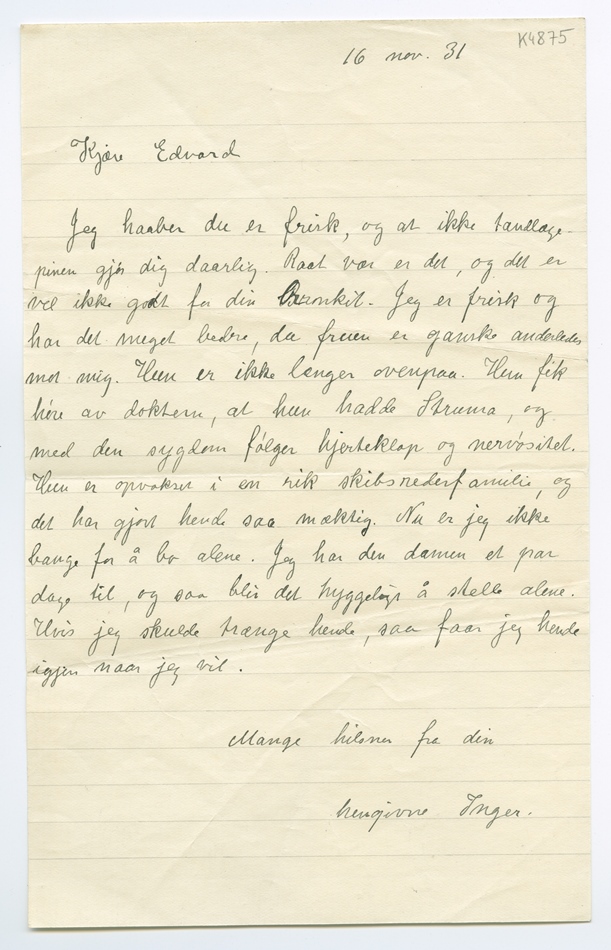 K4875
16 nov. 31
Kjære Edvard
Jeg haaber du er frisk, og at ikke tandlæge-
pinen gjør dig daarlig. Raat vær er det, og det er
vel ikke godt for din bronkit. Jeg er frisk og
har det meget bedre, da fruen er ganske anderledes
mot mig. Hun er ikke længer ovenpaa. Hun fik
høre av doktern, at hun hadde Struma, og
med den sygdom følger hjerteklap og nervøsitet.
Hun er opvokset i en rik skibsrederfamilie, og
det har gjort hende saa mæktig. Nu er jeg ikke
bange for å bo alene. Jeg har den damen et par
dage til, og saa blir det hyggeligt å stelle alene.
Hvis jeg skulde trænge hende, saa faar jeg hende
igjen naar jeg vil.
Mange hilsner fra din
hengivne Inger.